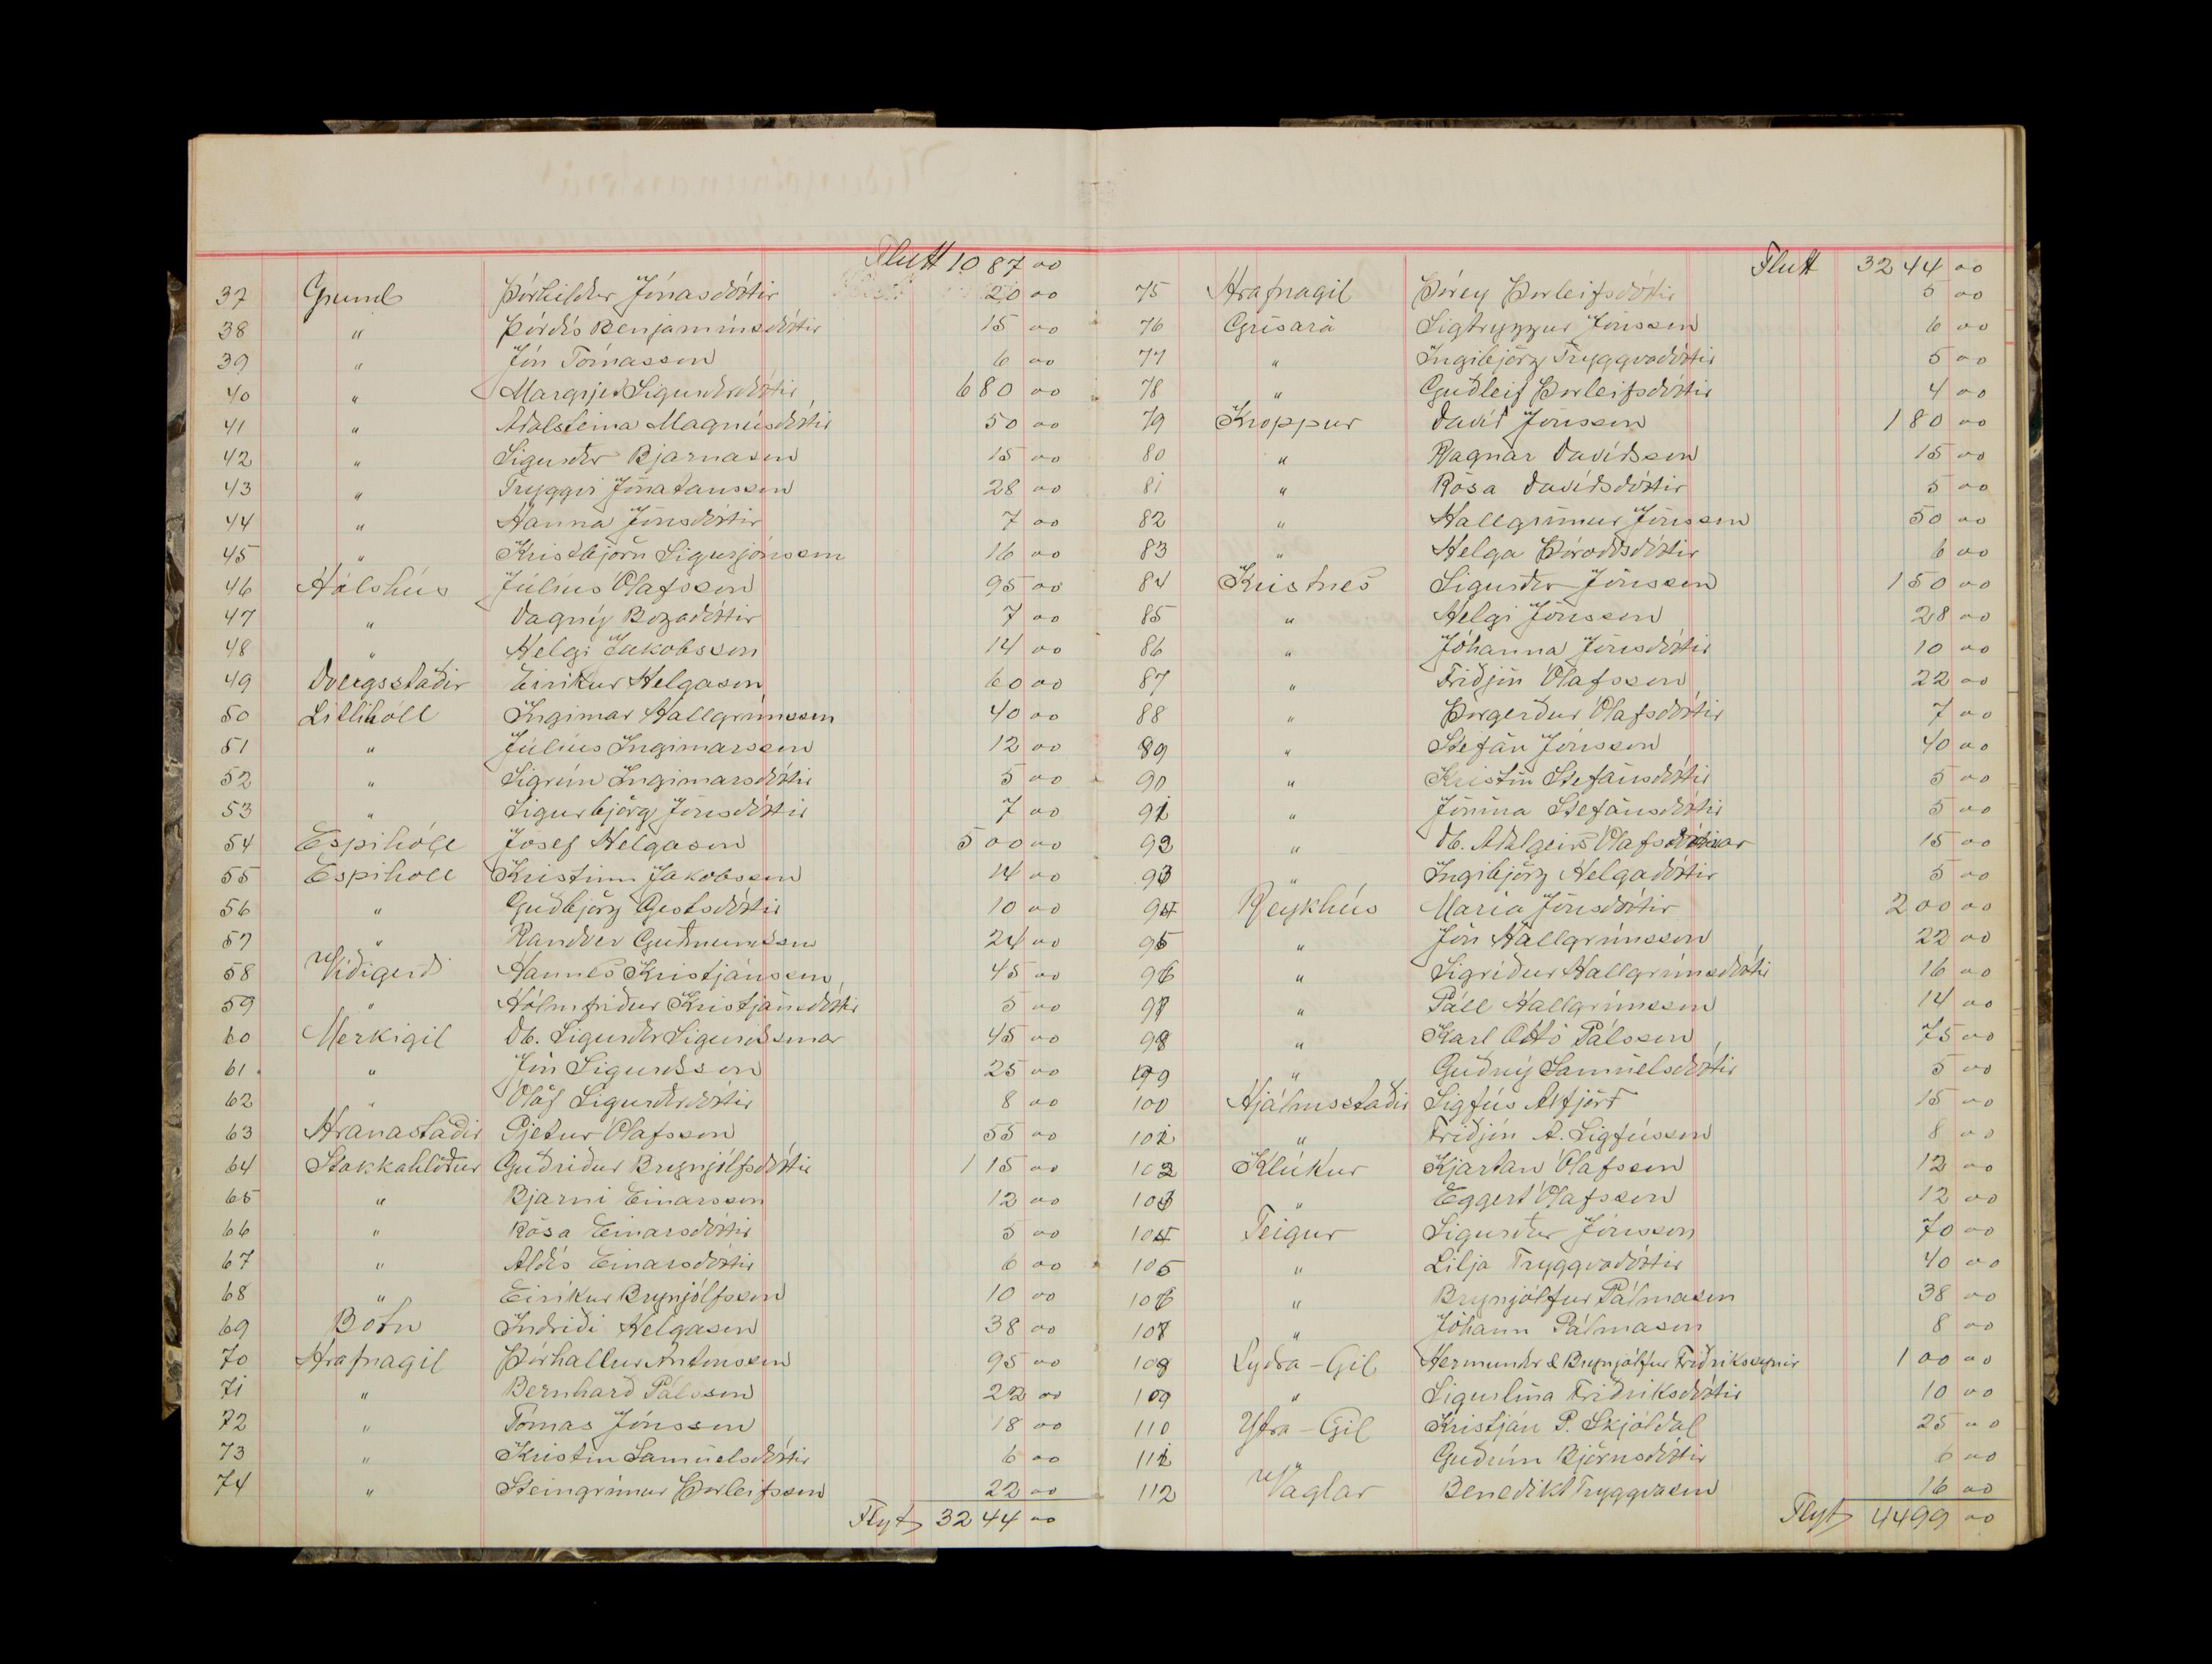 Flutt 1087 00
37 Grund Þórhildur Jónasdóttir 20 00
38 " Þórdís Benjamínsdóttir 15 00
39 " Jón Tómasson 6 00
40 " Margrjet Sigurðardóttir 680 00
41 " Aðalsteina Magnúsdóttir 50 00
42 " Sigurður Bjarnason 15 00
43 " Tryggvi Jónatansson 28 00
44 " Hanna Jónsdóttir 7 00
45 " Kristbjörn Sigurjónsson 16 00
46 Hálshús Júlíus Ólafsson 95 00
47 " Dagný Bogadóttir 7 00
48 " Helgi Jakobsson 14 00
49 Dvergsstaðir Eiríkur Helgason 60 00
50 Litlihóll Ingimar Hallgrímsson 40 00
51 " Júlíus Ingimarsson 12 00
52 " Sigrún Ingimarsdóttir 5 00
53 " Sigurbjörg Jónsdóttir 7 00
54 Espihóll Jósef Helgason 500 00
55 Espihóll Kristinn Jakobsson 14 00
56 " Guðbjörg Gestsdóttir 10 00
57 " Randver Guðmundsson 24 00
58 Víðigerði Hannes Kristjánsson 45 00
59 " Hólmfríður Kristjánsdóttir 5 00
60 Merkigil Db. Sigurðar Sigurðssonar 45 00
61 " Jón Sigurðsson 25 00
62 " Ólöf Sigurðardóttir 8 00
63 Hranastaðir Pjetur Ólafsson 55 00
64 Stokkahlöður Guðríður Brynjólfsdóttir 115 00
65 " Bjarni Einarsson 12 00
66 " Rósa Einarsdóttir 5 00
67 " Aldís Einarsdóttir 6 00
68 " Eiríkur Brynjólfsson 10 00
69 Botn Indriði Helgason 38 00
70 Hrafnagil Þórhallur Antonsson 95 00
71 " Bernharð Pálsson 22 00
72 " Tómas Jónsson 18 00
73 " Kristín Samúelsdóttir 6 00
74 " Steingrímur Þorleifsson 22 00
Flyt 3244 00
Flutt 3244 00
75 Hrafnagil Þórey Þorleifsdóttir 5 00
76 Grísará Sigtryggur Jónsson 6 00
77 " Ingibjörg Tryggvadóttir 5 00
78 " Guðleif Þorleifsdóttir 4 00
79 Kroppur Davíð Jónsson 180 00
80 " Ragnar Davíðsson 15 00
81 " Rósa Davíðsdóttir 5 00
82 " Hallgrímur Jónsson 50 00
83 " Helga Þóroddsdóttir 6 00
84 Kristnes Sigurður Jónsson 150 00
85 " Helgi Jónsson 28 00
86 " Jóhanna Jónsdóttir 10 00
87 " Friðjón Ólafsson 22 00
88 " Þorgerður Ólafsdóttir 7 00
89 " Stefán Jónsson 40 00
90 " Kristín Stefánsdóttir 5 00
91 " Jónína Stefánsdóttir 5 00
92 " Db. Aðalgeirs Ólafssonar 15 00
93 " Ingibjörg Helgadóttir 5 00
94 Reykhús María Jónsdóttir 200 00
95 " Jón Hallgrímsson 22 00
96 " Sigríður Hallgrímsdóttir 16 00
97 " Páll Hallgrímsson 14 00
98 " Karl Ottó Pálsson 75 00
99 " Guðný Samúelsdóttir 5 00
100 Hjálmsstaðir Sigfús Axfjörð 15 00
101 " Friðjón A. Sigfússon 8 00
102 Klúkur Kjartan Ólafsson 12 00
103 " Eggert Ólafsson 12 00
104 Teigur Sigurður Jónsson 70 00
105 " Lilja Tryggvadóttir 40 00
106 " Brynjólfur Pálmason 38 00
107 " Jóhann Pálmason 8 00
108 Syðra-Gil Hermundr & Brynjólfur Friðrikssynir 100 00
109 " Sigurlína Friðriksdóttir 10 00
110 Ytra-Gil Kristján P. Skjóldal 25 00
111 " Guðrún Björnsdóttir 6 00
112 Vaglar Benedikt Tryggvason 16 00
Flyt 4499 00